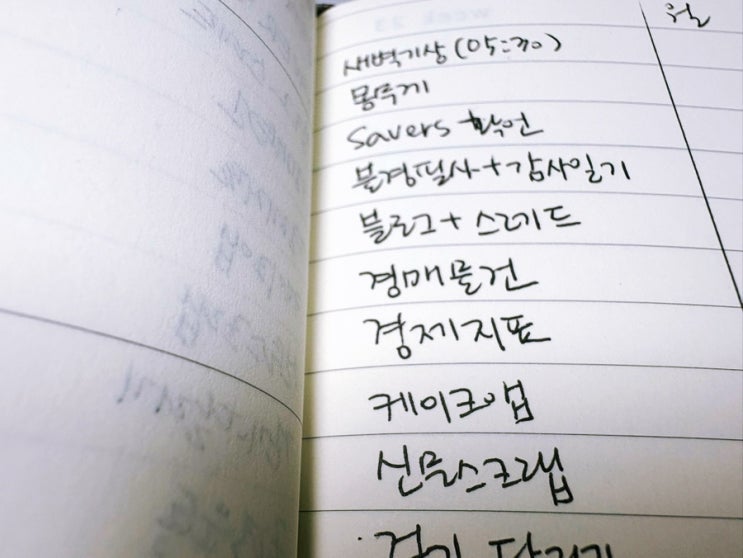 월
새벽기상(05:30)
몽투게
savers 확언
불경필사+감사일기
블로그+스레드
경매물건
경제지표
케이크앱
신문스크랩